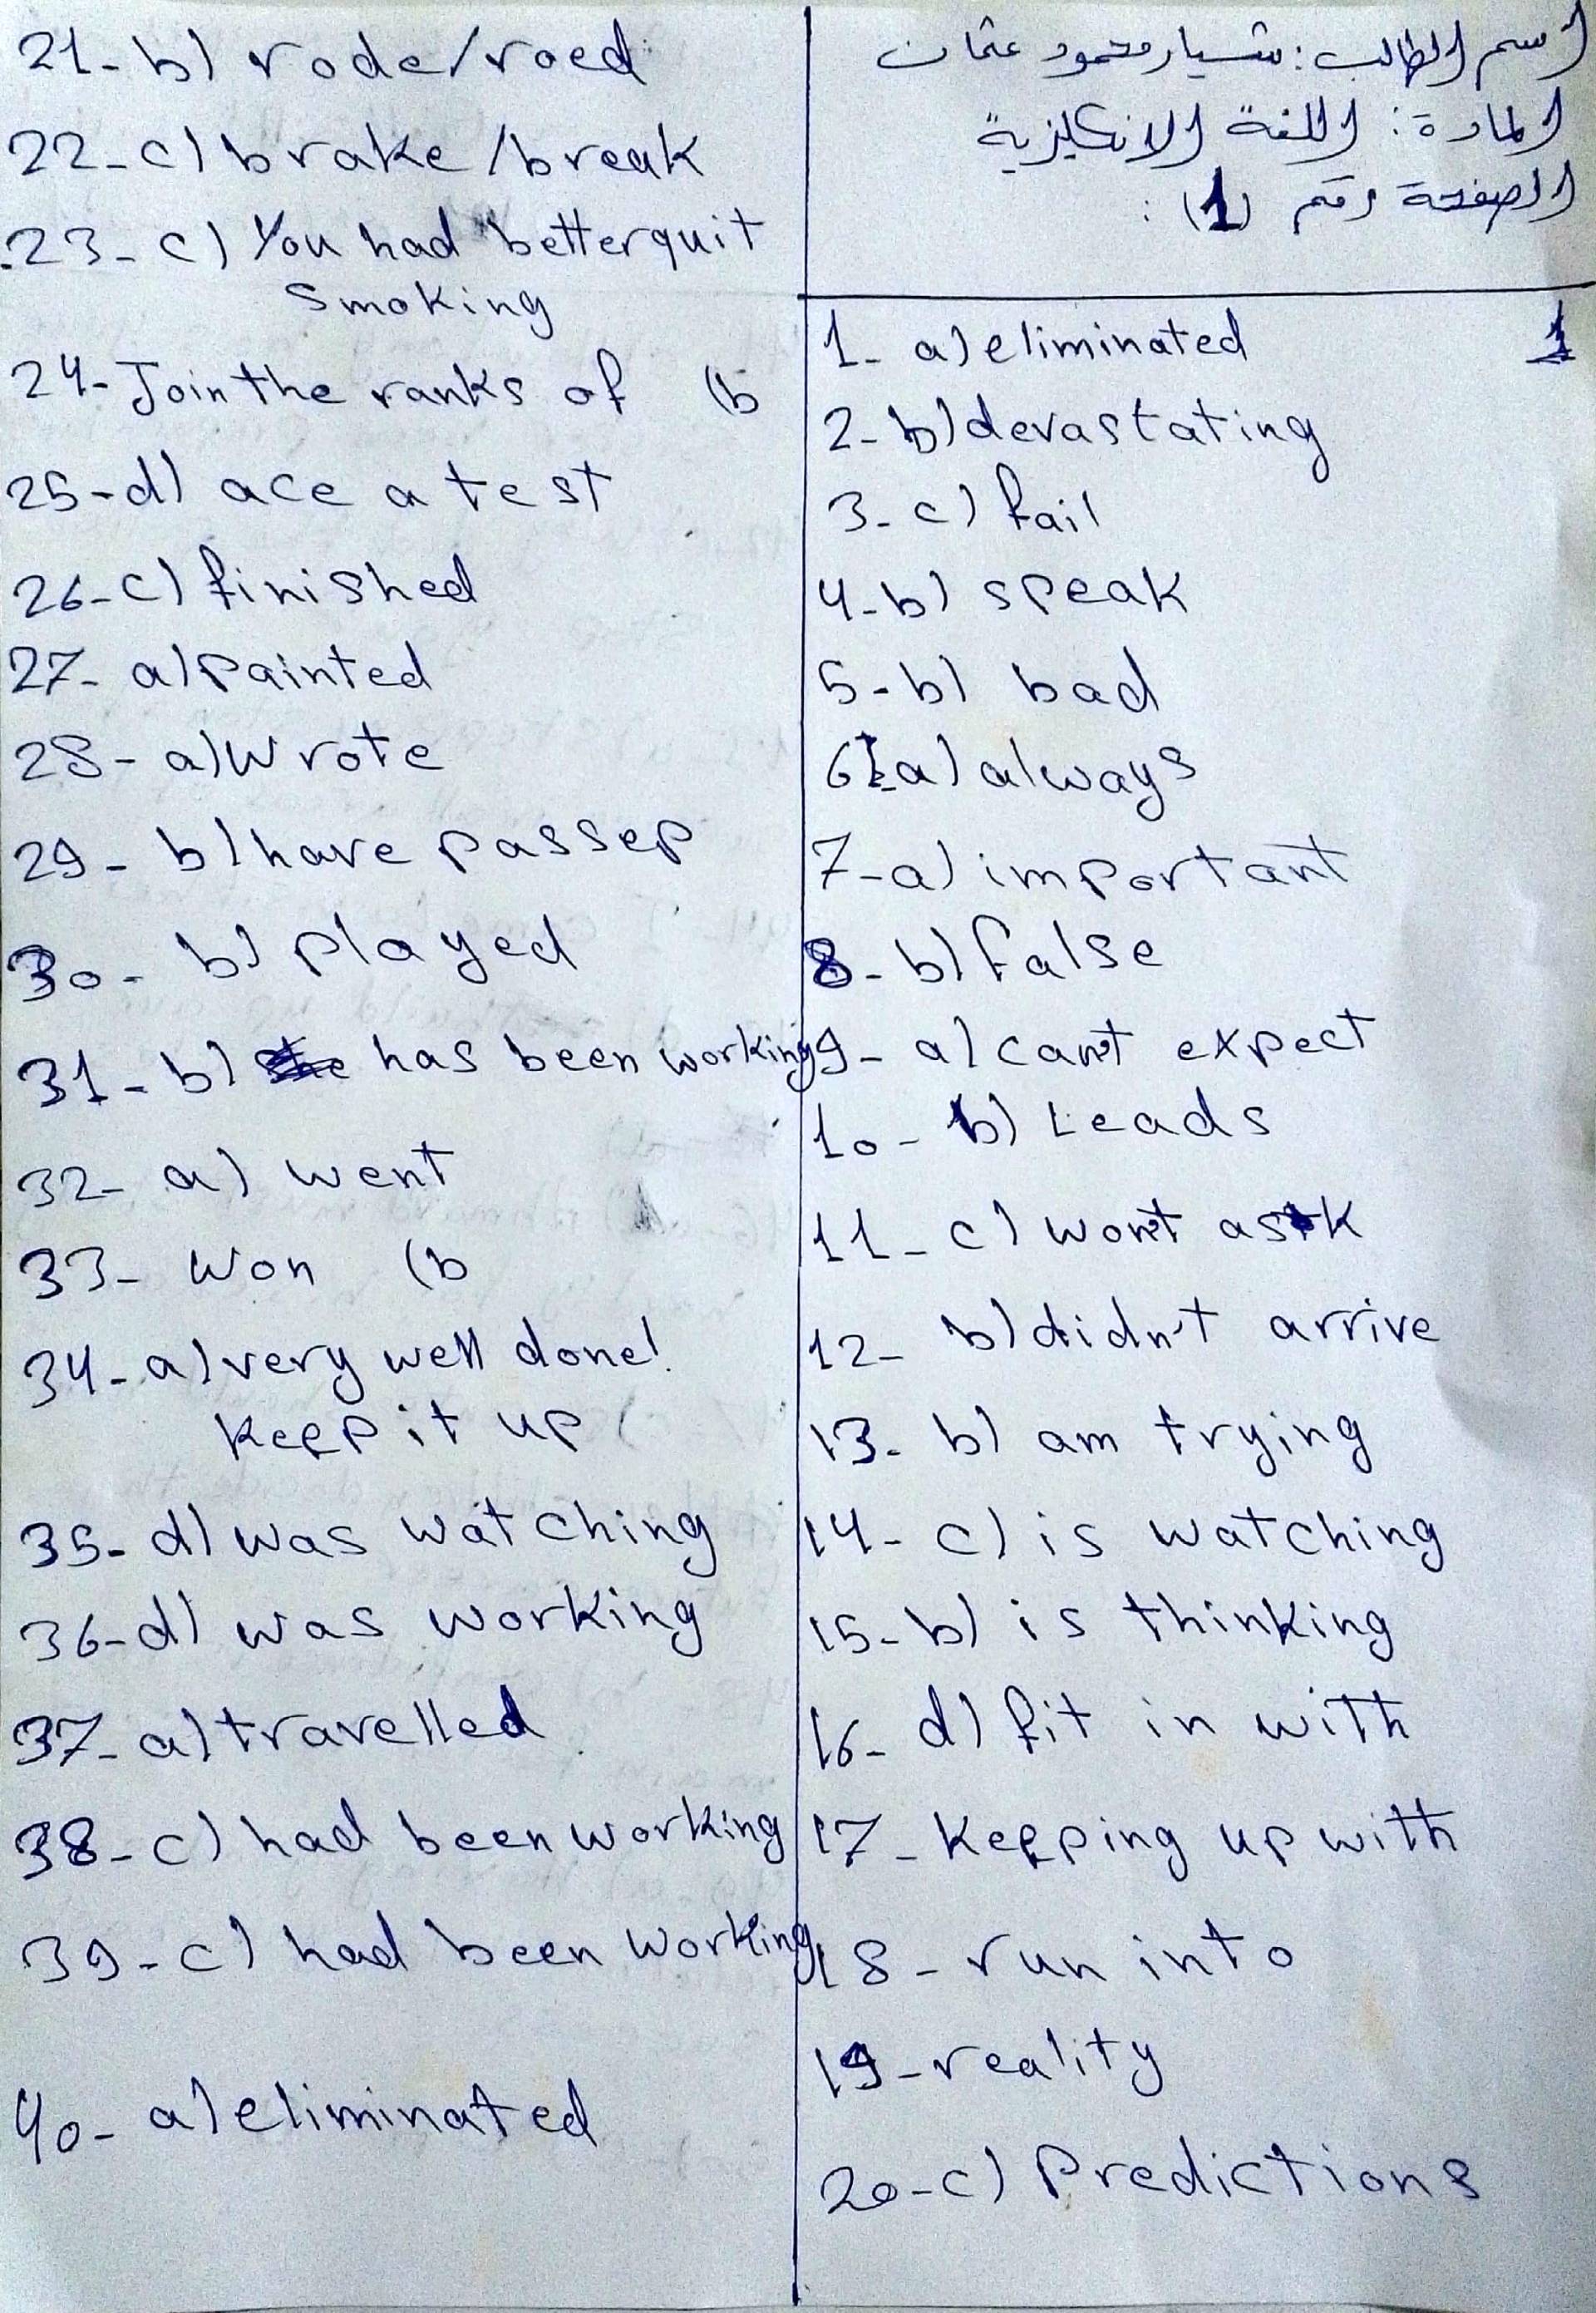 اسم الطالب: شيار محمود عثمان
المادة: اللغة الانكليزية
الصفحة رقم (1):
1
1- a) eliminated
2- b) devastating
3- c) fail
4-b) speak
5-b) bad
6-a) always
7-a) important
8-b) false
9-a) can't expect
10-b) Leads
11-c) won't ask
12- b) didn't arrive
13- b) am trying
14- c) is watching
15-b) is thinking
16- d) fit in with
17- Keeping up with
18- run into
19-reality
20-c) Predictions
21-b) rode/roed
22-c) brake/break
23- c) You had better quit
smoking
24-Join the ranks of (b
25-d) ace a test
26-c) finished
27- a) Painted
28- a) wrote
29- b) have passep
30- b) played
31-b) has been working
32- a) went
33- won (b
34-a) very well done!
Keep it up
35-d) was watching
36-d) was working
37-a) travelled
38-c) had been working
39-c) had been working
40- a) eliminated